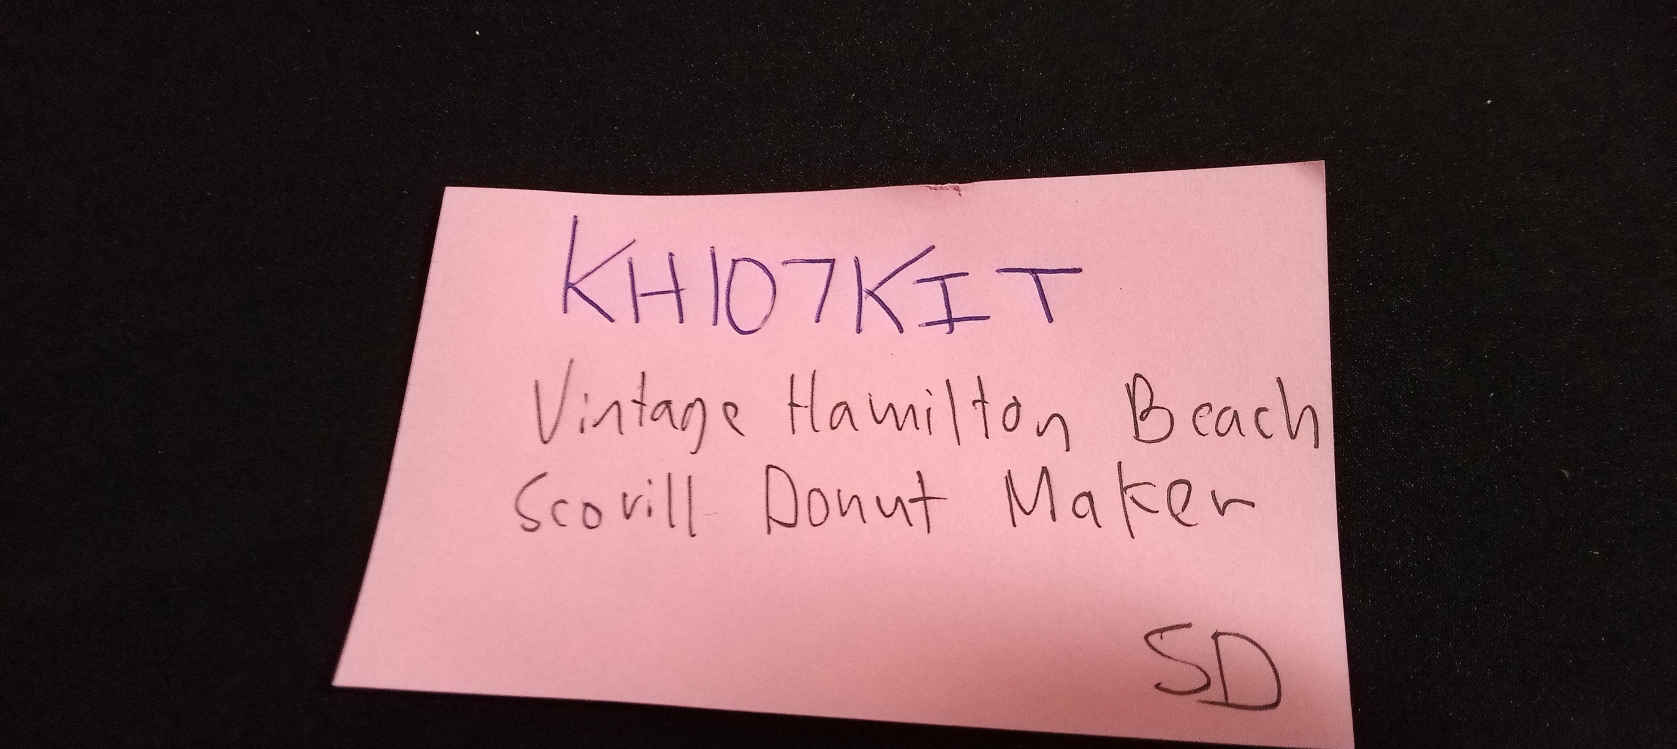 KH107KIT
Vintage Hamilton Beach
Scovill Donut Maker
SD